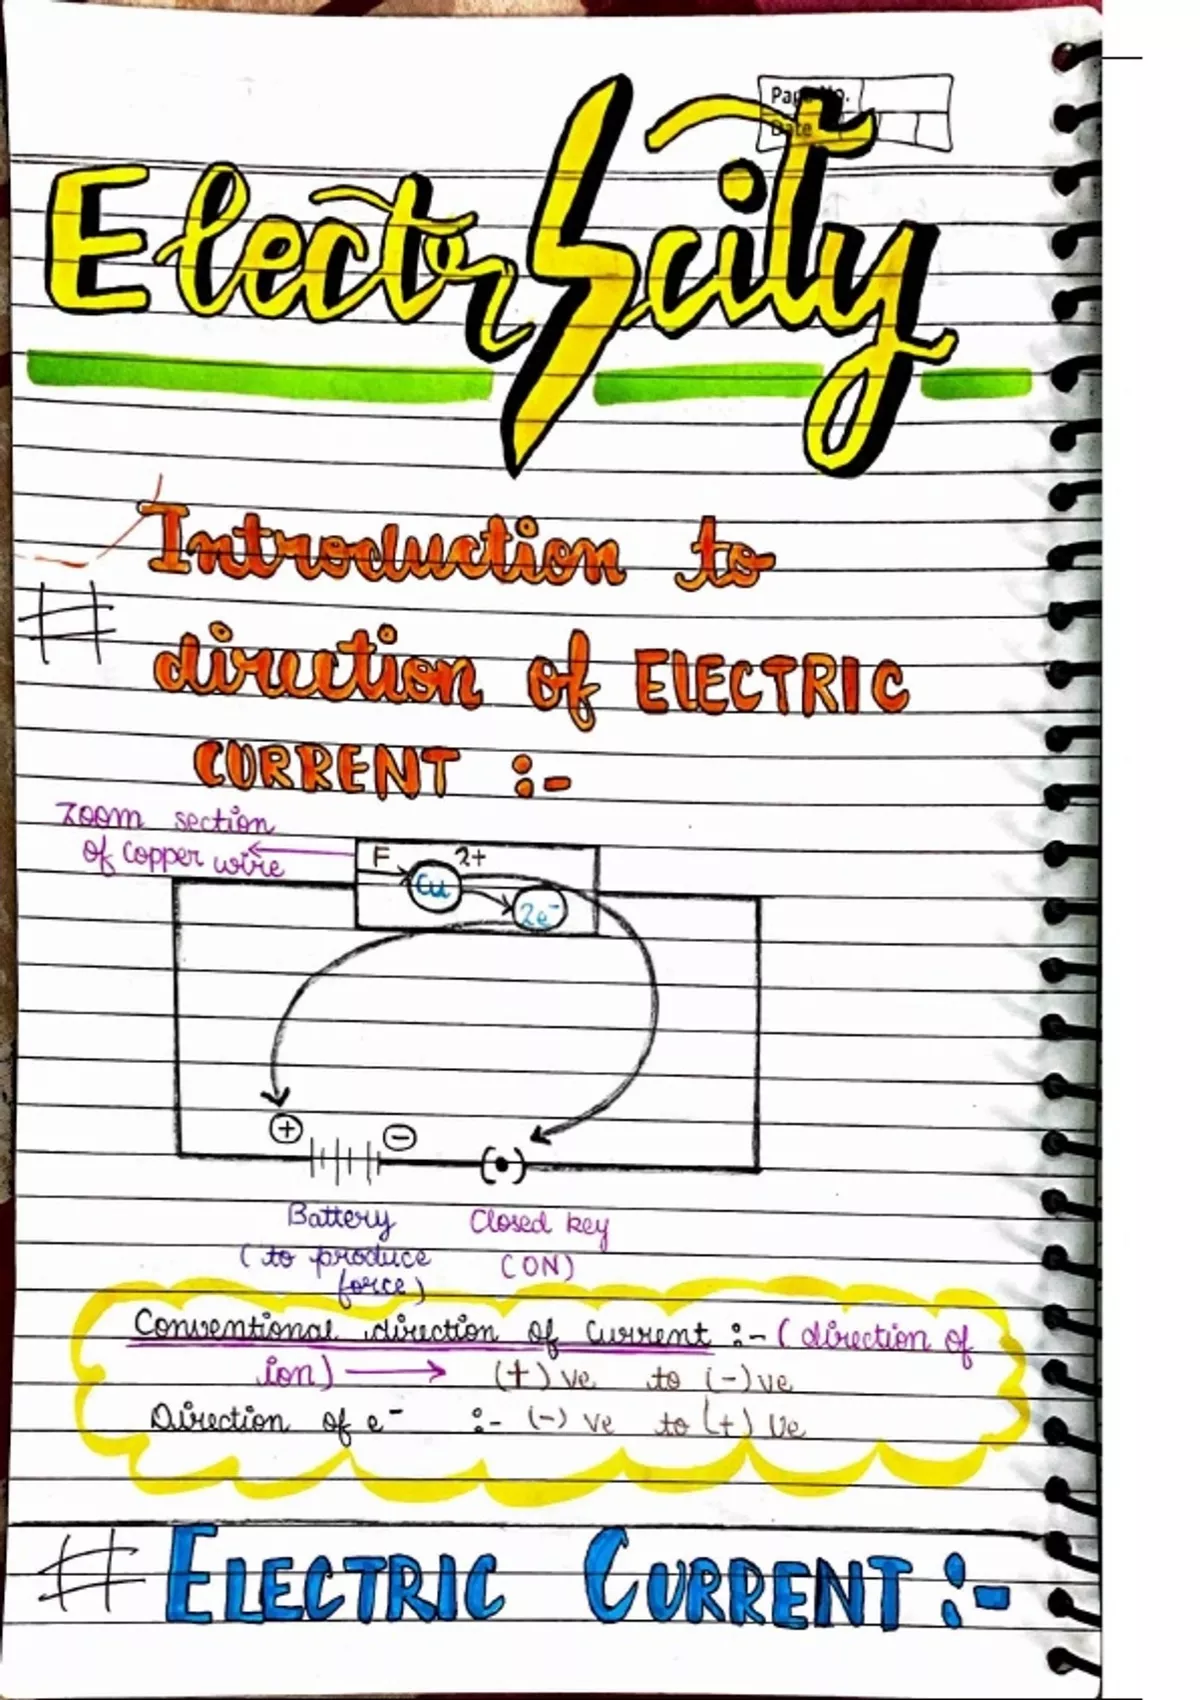 Page No.
Date
Electricity
# Introduction to
direction of ELECTRIC
CURRENT :-
Zoom section
of Copper wire
F 2+
Cu
2e⁻
+ -
Battery
(to produce
force)
Closed key
(ON)
Conventional direction of Current :- (direction of
ion) → (+)ve to (-)ve
Direction of e⁻ :- (-) ve to (+) ve
# ELECTRIC CURRENT :-